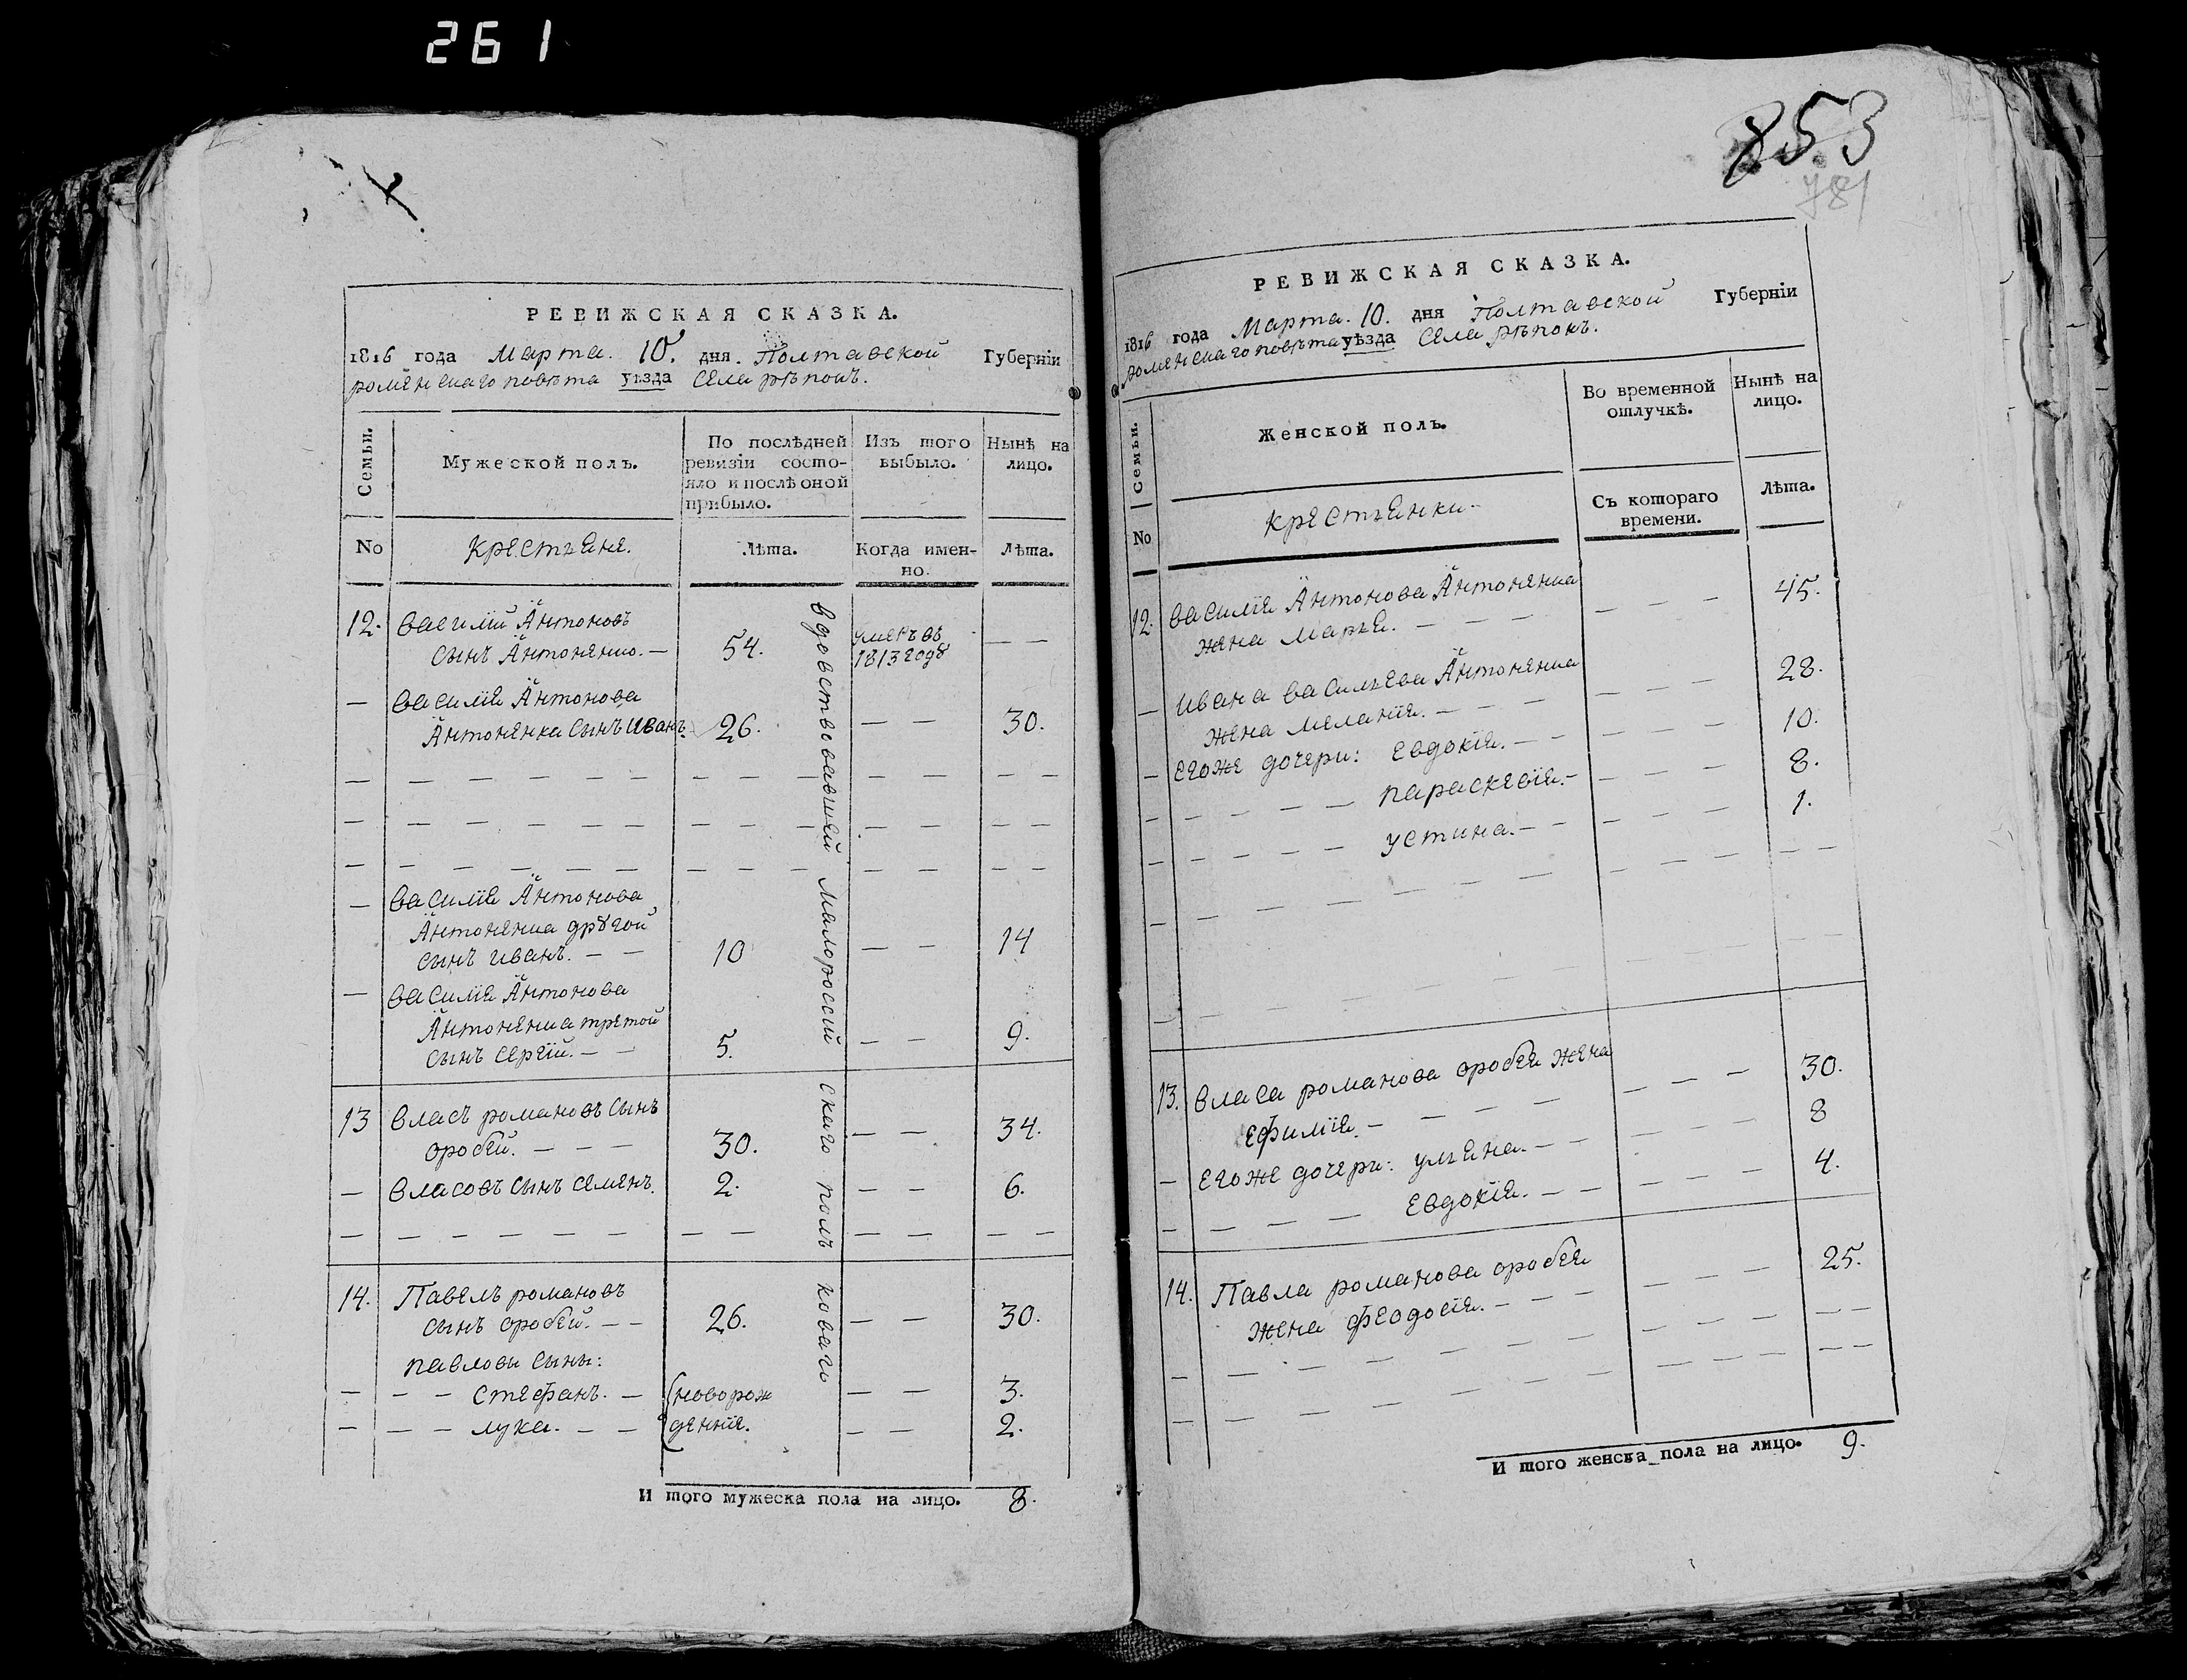 261
853
781
РЕВИЖСКАЯ СКАЗКА.
1816 года Марта. 10. дня. Полтавской Губерніи
роменскаго повѣта уѣзда Села рѣпокъ.
Семьи.
Мужеской полъ.
По послѣдней ревизіи состояло и послѣ оной прибыло.
Изъ того выбыло.
Нынѣ на лицо.
No
крестьяне.
Лѣта.
Когда именно.
Лѣта.
12. василій Антоновъ
сынъ Антоненко. — 54. умеръ въ 1813 годꙋ — —
— василія Антонова
Антоненка сынъ иванъ. 26. — — 30.
— василія Антонова
Антоненка дрꙋгой
сынъ иванъ. — — 10 — — 14
— василія Антонова
Антоненка третой
сынъ сергій. — — 5. — — 9.
13 власъ романовъ сынъ
оробей. — — — 30. — — 34.
— власовъ сынъ семенъ. 2. — — 6.
14. Павелъ романовъ
сынъ оробей. — — 26. — — 30.
павловы сыны:
— — — стефанъ. — новорож — — 3.
— — — лука. — — денніе. — — 2.
И того мужеска пола на лицо. 8.
вдовствовавшей малороссійскаго полк коваль
РЕВИЖСКАЯ СКАЗКА.
1816 года Марта. 10. дня Полтавской Губерніи
роменскаго повѣта уѣзда Села рѣпокъ.
Семьи.
Женской полъ.
Во временной отлучкѣ.
Нынѣ на лицо.
No
крестьянки.
Съ котораго времени.
Лѣта.
12. василія Антонова Антоненка
жена марья. — — — — — — 45.
— ивана васильева Антоненка
жена меланія. — — — — — — 28.
— егоже дочери: евдокія. — — — — — 10.
— — — — — параскевія. — — — — 8.
— — — — — устина. — — — — — 1.
13. власа романова оробея жена
ефимія. — — — — — — — 30.
— егоже дочери: ульяна. — — — — — 8
— — — — евдокія. — — — — — 4.
14. Павла романова оробея
жена феодосія. — — — — — — 25.
И того женска пола на лицо. 9.